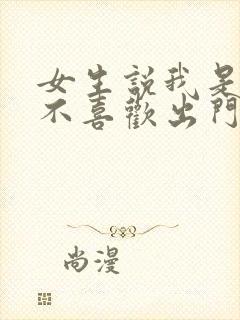 女生說我是
不喜歡出門
尚漫